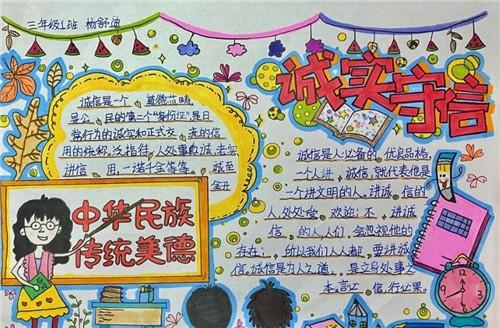 三年级1班 杨舒涵
诚实守信
诚信是一个 道德范畴，
是公 民的第二个"身份证"，是日
常行为的诚实和正式交 老的信
用的统称。泛指待人处事真诚、老实、
讲信 用，一诺千金等等。 诚至
金开
中华民族
传统美德
诚信是人必备的 优良品格，
一个人讲 诚信，就代表他是
一个讲文明的人。讲诚 信的
人，处处受 欢迎；不 讲诚
信 的人，人们 会忽视他的
存在； 所以我们人人都 要讲诚
信。诚信是为人之道， 是立身处事之
本。言必 信，行必果。